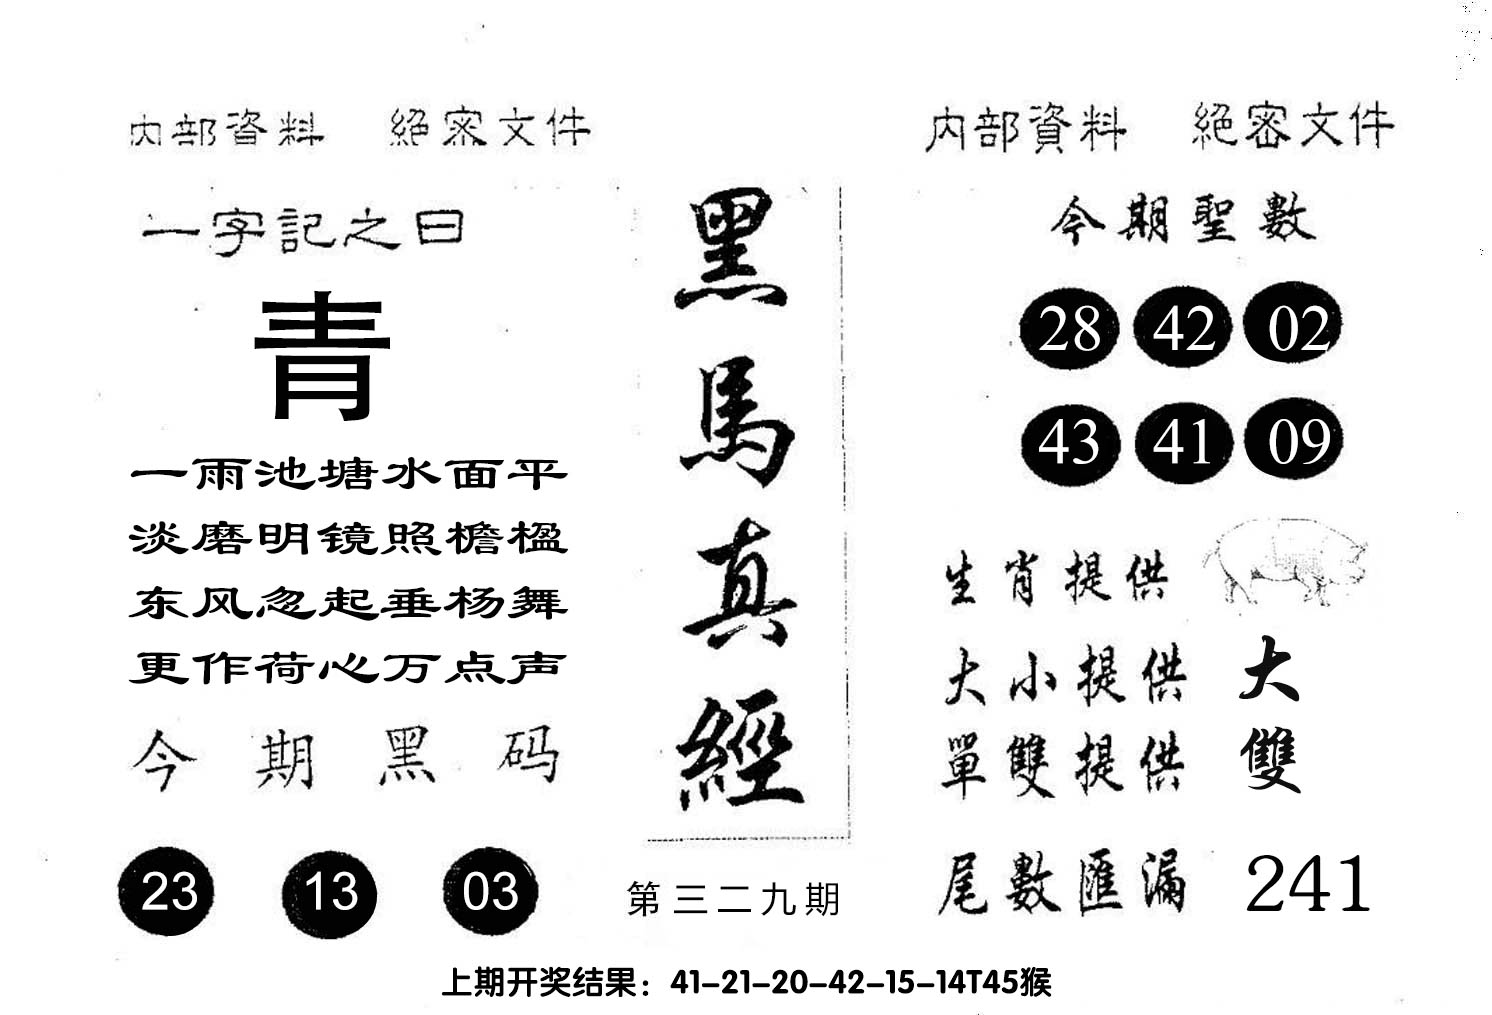 内部資料 絕密文件
一字記之曰
青
一雨池塘水面平
淡磨明镜照檐楹
东风忽起垂杨舞
更作荷心万点声
今期黑码
23 13 03
黑馬真經
第三二九期
内部資料 絕密文件
今期聖數
28 42 02
43 41 09
生肖提供
大小提供 大
單雙提供 雙
尾數匯漏 241
上期开奖结果：41-21-20-42-15-14T45猴